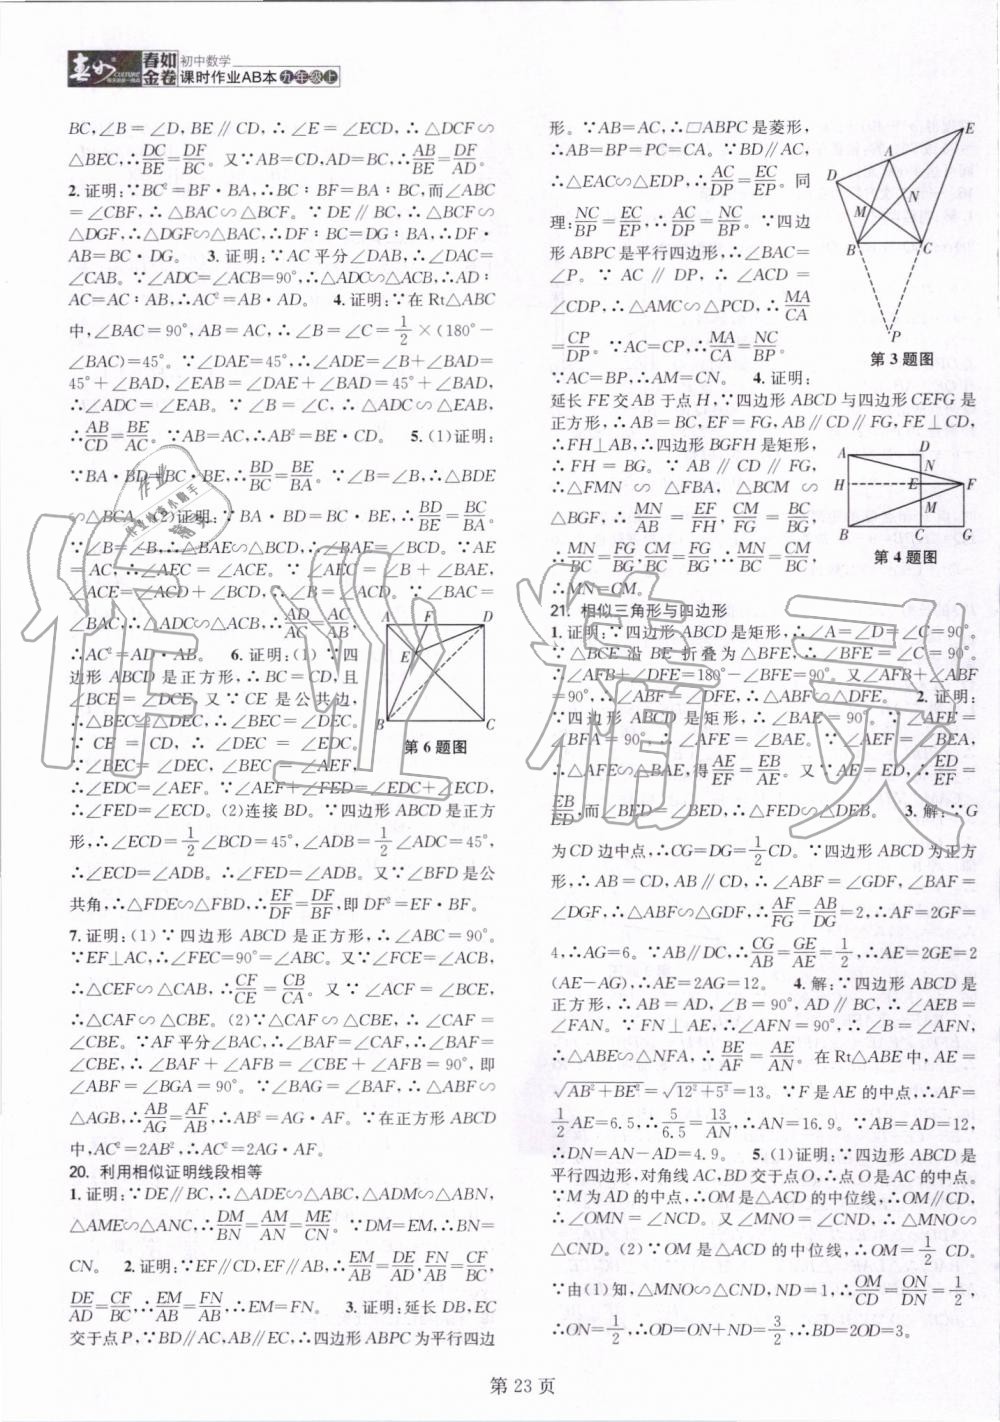 春如金卷
初中数学
课时作业AB本 九年级上
BC,∠B=∠D,BE∥CD,∴∠E=∠ECD,∴△DCF∽
△BEC,∴DC/BE=DF/BC。又∵AB=CD,AD=BC,∴AB/BE=DF/AD。
2. 证明:∵BC²=BF·BA,∴BC∶BF=BA∶BC,而∠ABC
=∠CBF,∴△BAC∽△BCF。∵DE∥BC,∴△BCF∽
△DGF,∴△DGF∽△BAC,∴DF∶BC=DG∶BA,∴DF·
AB=BC·DG。 3. 证明:∵AC平分∠DAB,∴∠DAC=
∠CAB。∵∠ADC=∠ACB=90°,∴△ADC∽△ACB,∴AD∶
AC=AC∶AB,∴AC²=AB·AD。 4. 证明:∵在Rt△ABC
中,∠BAC=90°,AB=AC,∴∠B=∠C=1/2×(180°-
∠BAC)=45°。∵∠DAE=45°,∴∠ADE=∠B+∠BAD=
45°+∠BAD,∠EAB=∠DAE+∠BAD=45°+∠BAD,
∴∠ADC=∠EAB。∵∠B=∠C,∴△ADC∽△EAB,
∴AB/CD=BE/AC。∵AB=AC,∴AB²=BE·CD。 5. (1)证明:
∵BA·BD=BC·BE,∴BD/BC=BE/BA。∵∠B=∠B,∴△BDE
∽△BCA。(2)证明:∵BA·BD=BC·BE,∴BD/BE=BC/BA。
∵∠B=∠B,∴△BAE∽△BCD,∴∠BAE=∠BCD。∵AE
=AC,∴∠AEC=∠ACE。∵∠AEC=∠B+∠BAE,
∠ACE=∠ACD+∠BCD,∴∠B=∠ACD。∵∠BAC=
∠BAC,∴△ADC∽△ACB,∴AD/AC=AC/AB,
∴AC²=AD·AB。 6. 证明:(1)∵四
边形ABCD是正方形,∴BC=CD,且
∠BCE=∠DCE,又∵CE是公共边,
∴△BEC≌△DEC,∴∠BEC=∠DEC。
∵CE=CD,∴∠DEC=∠EDC。
∵∠BEC=∠DEC,∠BEC=∠AEF,
∴∠EDC=∠AEF。∵∠AEF+∠FED=∠EDC+∠ECD,
∴∠FED=∠ECD。(2)连接BD。∵四边形ABCD是正方
形,∴∠ECD=1/2∠BCD=45°,∠ADB=1/2∠ADC=45°,
∴∠ECD=∠ADB。∴∠FED=∠ADB。又∵∠BFD是公
共角,∴△FDE∽△FBD,∴EF/DF=DF/BF,即DF²=EF·BF。
7. 证明:(1)∵四边形ABCD是正方形,∴∠ABC=90°。
∵EF⊥AC,∴∠FEC=90°=∠ABC。又∵∠FCE=∠ACB,
∴△CEF∽△CAB,∴CF/CE=CB/CA。又∵∠ACF=∠BCE,
∴△CAF∽△CBE。(2)∵△CAF∽△CBE,∴∠CAF=
∠CBE。∵AF平分∠BAC,∴∠BAF=∠CAF,∴∠BAF=
∠CBE,∴∠BAF+∠AFB=∠CBE+∠AFB=90°,即
∠ABF=∠BGA=90°。∵∠BAG=∠BAF,∴△ABF∽
△AGB,∴AB/AG=AF/AB,∴AB²=AG·AF。∵在正方形ABCD
中,AC²=2AB²,∴AC²=2AG·AF。
20. 利用相似证明线段相等
1. 证明:∵DE∥BC,∴△ADE∽△ABC,△ADM∽△ABN,
△AME∽△ANC,∴DM/BN=AM/AN=ME/CN。∵DM=EM,∴BN=
CN。 2. 证明:∵EF∥CD,EF∥AB,∴EM/AB=DE/AD,FN/AB=CF/BC,
DE/AD=CF/BC,∴EM/AB=FN/AB,∴EM=FN。 3. 证明:延长DB,EC
交于点P,∵BD∥AC,AB∥EC,∴四边形ABPC为平行四边
A F D
E
B C
第6题图
形。∵AB=AC,∴□ABPC是菱形,
∴AB=BP=PC=CA。∵BD∥AC,
∴△EAC∽△EDP,∴AC/DP=EC/EP。同
理:NC/BP=EC/EP,∴AC/DP=NC/BP。∵四边
形ABPC是平行四边形,∴∠BAC=
∠P。∵AC∥DP,∴∠ACD=
∠CDP,∴△AMC∽△PCD,∴MA/CA
=CP/DP。∵AC=CP,∴MA/CA=NC/BP。
∵AC=BP,∴AM=CN。 4. 证明:
延长FE交AB于点H,∵四边形ABCD与四边形CEFG是
正方形,∴AB=BC,EF=FG,AB∥CD∥FG,FE⊥CD,
∴FH⊥AB,∴四边形BGFH是矩形,
∴FH=BG。∵AB∥CD∥FG,
∴△FMN∽△FBA,△BCM∽
△BGF,∴MN/AB=EF/FH,CM/FG=BC/BG,
∴MN/BC=FG/BG,CM/BC=FG/BG,∴MN/BC=CM/BC,
∴MN=CM。
E
A
D
M N
B C
P
第3题图
A D
N
H E F
M
B C G
第4题图
21. 相似三角形与四边形
1. 证明:∵四边形ABCD是矩形,∴∠A=∠D=∠C=90°。
∵△BCE沿BE折叠为△BFE,∴∠BFE=∠C=90°。
∴∠AFB+∠DFE=180°-∠BFE=90°。又∠AFB+∠ABF
=90°,∴∠ABF=∠DFE,∴△ABF∽△DFE。 2. 证明:
∵四边形ABCD是矩形,∴∠BAE=90°。∵∠AFE=
∠BFA=90°,∴∠AFE=∠BAE。∵∠AEF=∠BEA,
∴△AFE∽△BAE,得AE/EF=EB/AE。又∵AE=ED,∴ED/EF=
EB/ED,而∠BED=∠BED,∴△FED∽△DEB。 3. 解:∵G
为CD边中点,∴CG=DG=1/2CD。∵四边形ABCD为正方
形,∴AB=CD,AB∥CD,∴∠ABF=∠GDF,∠BAF=
∠DGF,∴△ABF∽△GDF,∴AF/FG=AB/DG=2,∴AF=2GF=
4,∴AG=6。∵AB∥DC,∴CG/AB=GE/AE=1/2,∴AE=2GE=2
(AE-AG),∴AE=2AG=12。 4. 解:∵四边形ABCD是
正方形,∴AB=AD,∠B=90°,AD∥BC,∴∠AEB=
∠FAN。∵FN⊥AE,∴∠AFN=90°,∴∠B=∠AFN,
∴△ABE∽△NFA,∴BE/AF=AE/AN。在Rt△ABE中,AE=
√(AB²+BE²)=√(12²+5²)=13。∵F是AE的中点,∴AF=
1/2AE=6.5,∴5/6.5=13/AN,∴AN=16.9。∵AB=AD=12,
∴DN=AN-AD=4.9。 5. (1)证明:∵四边形ABCD是
平行四边形,对角线AC,BD交于点O,∴点O是AC的中点。
∵M为AD的中点,∴OM是△ACD的中位线,∴OM∥CD,
∴∠OMN=∠NCD。又∠MNO=∠CND,∴△MNO∽
△CND。(2)∵OM是△ACD的中位线,∴OM=1/2CD。
∵由(1)知,△MNO∽△CND,ND=1,∴OM/CD=ON/DN=1/2,
∴ON=1/2,∴OD=ON+ND=3/2,∴BD=2OD=3。
第23页
作业精灵